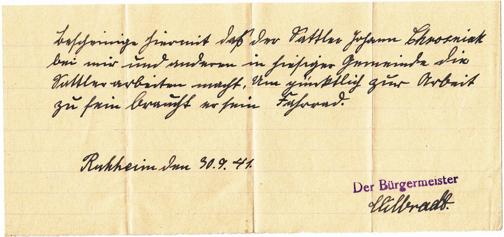 Bescheinige hiermit daß der Sattler Johann Chrosniek
bei mir und anderen in hiesiger Gemeinde die
Sattlerarbeiten macht. Um pünktlich zur Arbeit
zu sein braucht er sein Fahrrad.
den 30.9.41.
Der Bürgermeister